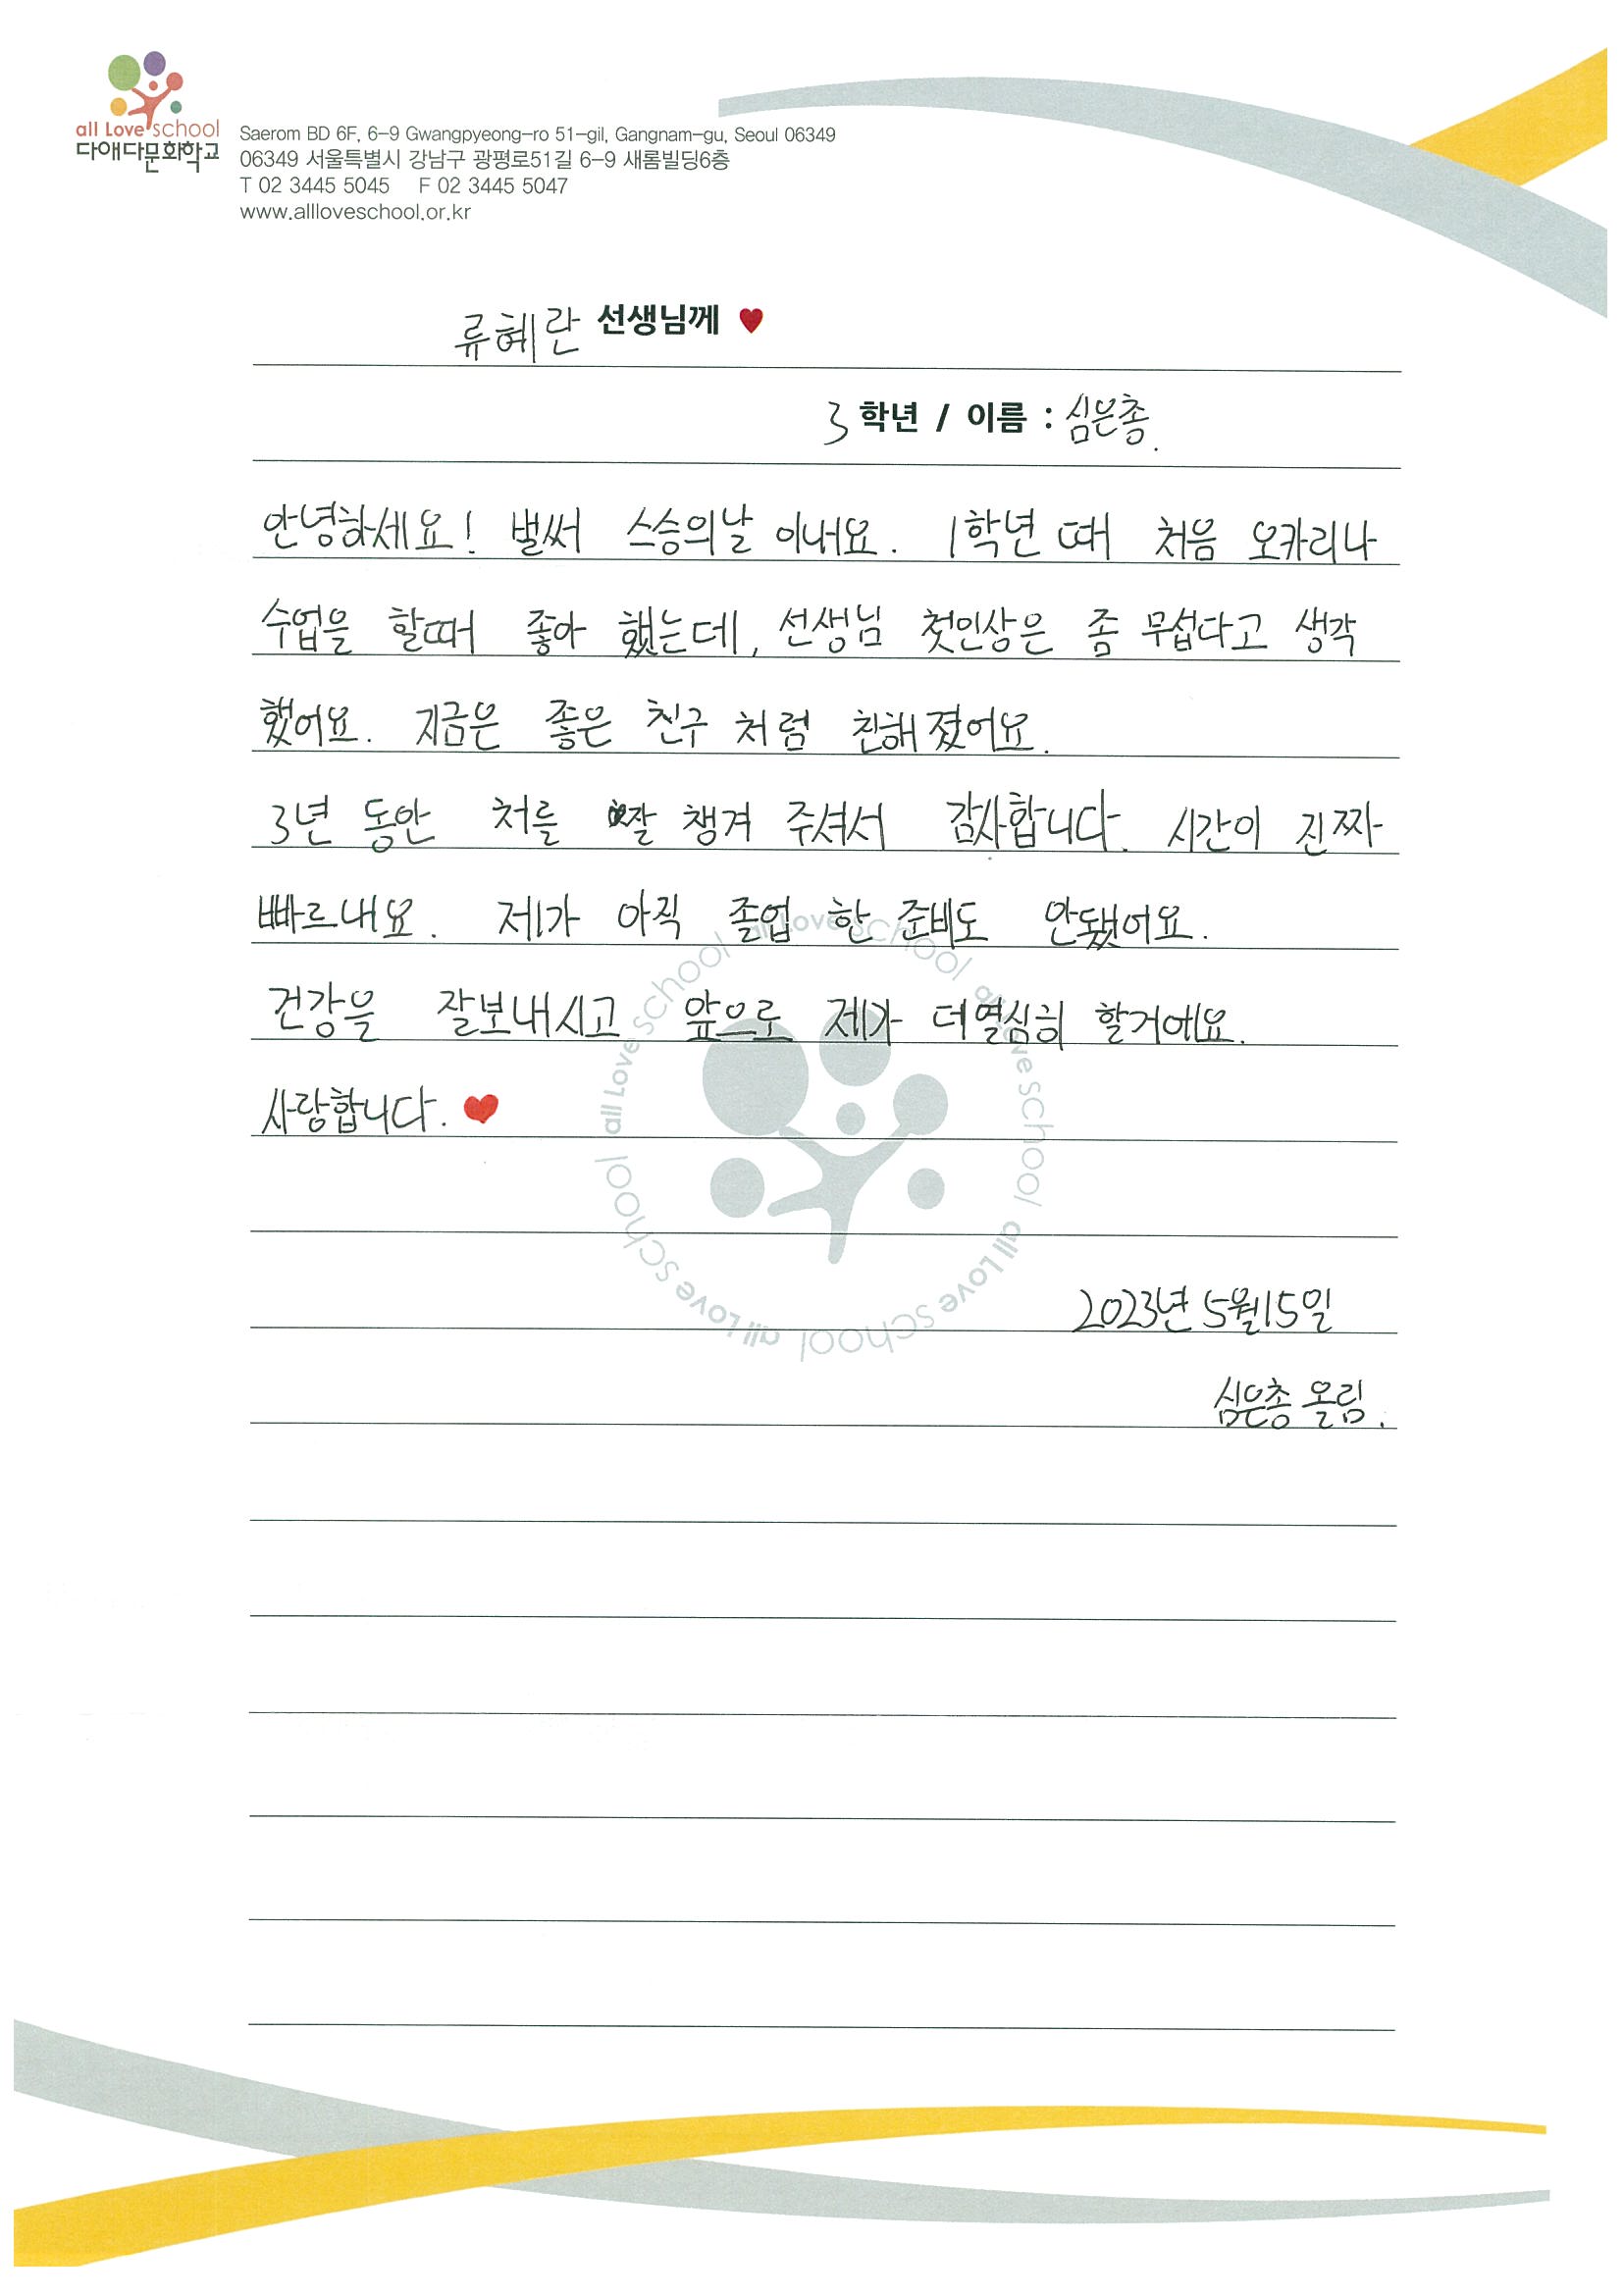 all Love school
다애다문화학교
Saerom BD 6F, 6-9 Gwangpyeong-ro 51-gil, Gangnam-gu, Seoul 06349
06349 서울특별시 강남구 광평로51길 6-9 새롬빌딩6층
T 02 3445 5045 F 02 3445 5047
www.allloveschool.or.kr
류혜란 선생님께 ♥
3 학년 / 이름 : 심은총.
안녕하세요! 벌써 스승의날 이내요. 1학년 때 처음 오카리나
수업을 할때 좋아 했는데, 선생님 첫인상은 좀 무섭다고 생각
했어요. 지금은 좋은 친구 처럼 친해졌어요.
3년 동안 처를 잘 챙겨 주셔서 감사합니다. 시간이 진짜
빠르내요. 제가 아직 졸업 한 준비도 안됐어요.
건강을 잘보내시고 앞으로 제가 더열심히 할거에요.
사랑합니다. ♥
all Love school all Love school all Love school all Love school all Love school all Love school
2023년 5월15일
심은총 올림.